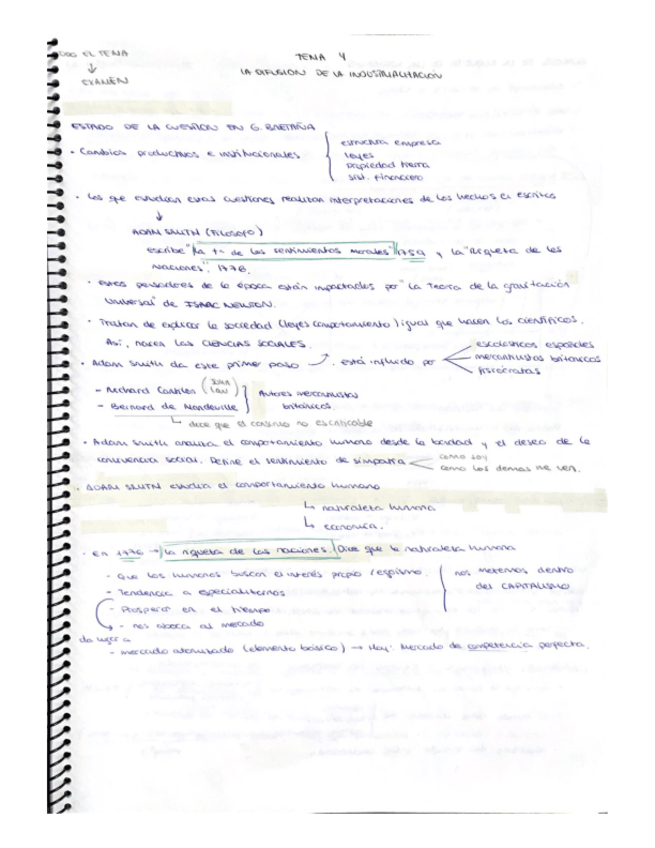 TODO EL TEMA
↓
EXAMEN
TEMA 4
LA DIFUSION DE LA INDUSTRIALIZACION
ESTADO DE LA CUESTION EN G. BRETAÑA
• Cambios productivos e institucionales
estructura empresa
leyes
propiedad tierra
sist. financiero
• Los que estudian estas cuestiones realizan interpretaciones de los hechos en escritos
↓
ADAM SMITH (Filosofo)
escribe "la tª de los sentimientos morales" 1759 y la "Riqueza de las
Naciones". 1776.
• estos pensadores de la época están impactados por "La Teoria de la gravitación
Universal" de ISAAC NEWTON.
• Tratan de explicar la sociedad (leyes comportamiento) igual que hacen los científicos.
Así, nacen las CIENCIAS SOCIALES.
• Adam Smith da este primer paso → está influido por
escolásticos españoles
mercantilistas britanicos
fisiócratas
– Richard Cantillon (John Law)
– Bernard de Mandeville
Autores mercantilistas
britanicos
↳ dice que el consumo no es criticable
• Adam Smith analiza el comportamiento humano desde la bondad y el deseo de la
convivencia social. Define el sentimiento de simpatía
como soy
como los demas me ven.
• ADAM SMITH estudia el comportamiento humano
↳ naturaleza humana
↳ economía.
• En 1776 → La riqueza de las naciones. Dice que la naturaleza humana
– Que los humanos buscan el interés propio / egoísmo.
– Tendencia a especializarnos
– Prosperar en el tiempo
– nos aboca al mercado
nos metemos dentro
del CAPITALISMO
da lugar a
– mercado atomizado (elemento básico) → Hoy: Mercado de competencia perfecta.